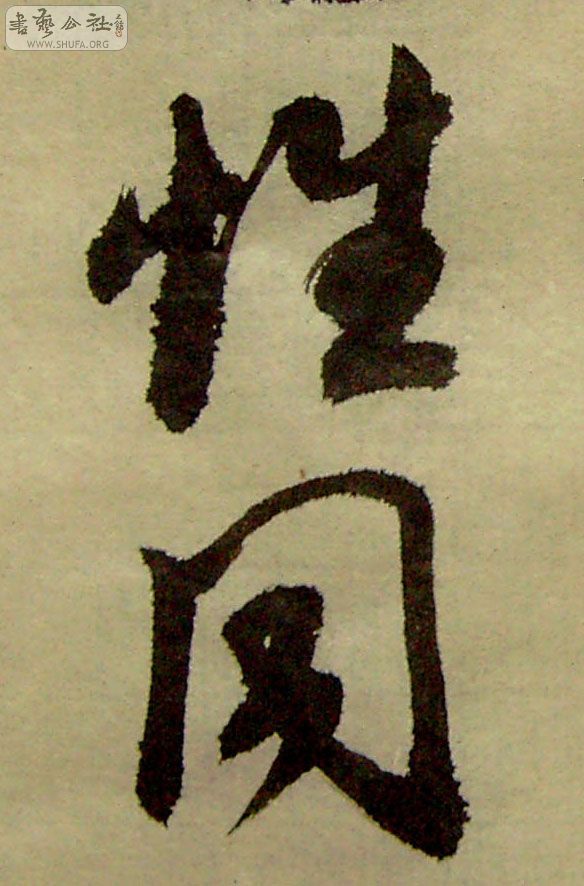 書藝公社
WWW.SHUFA.ORG
性
同